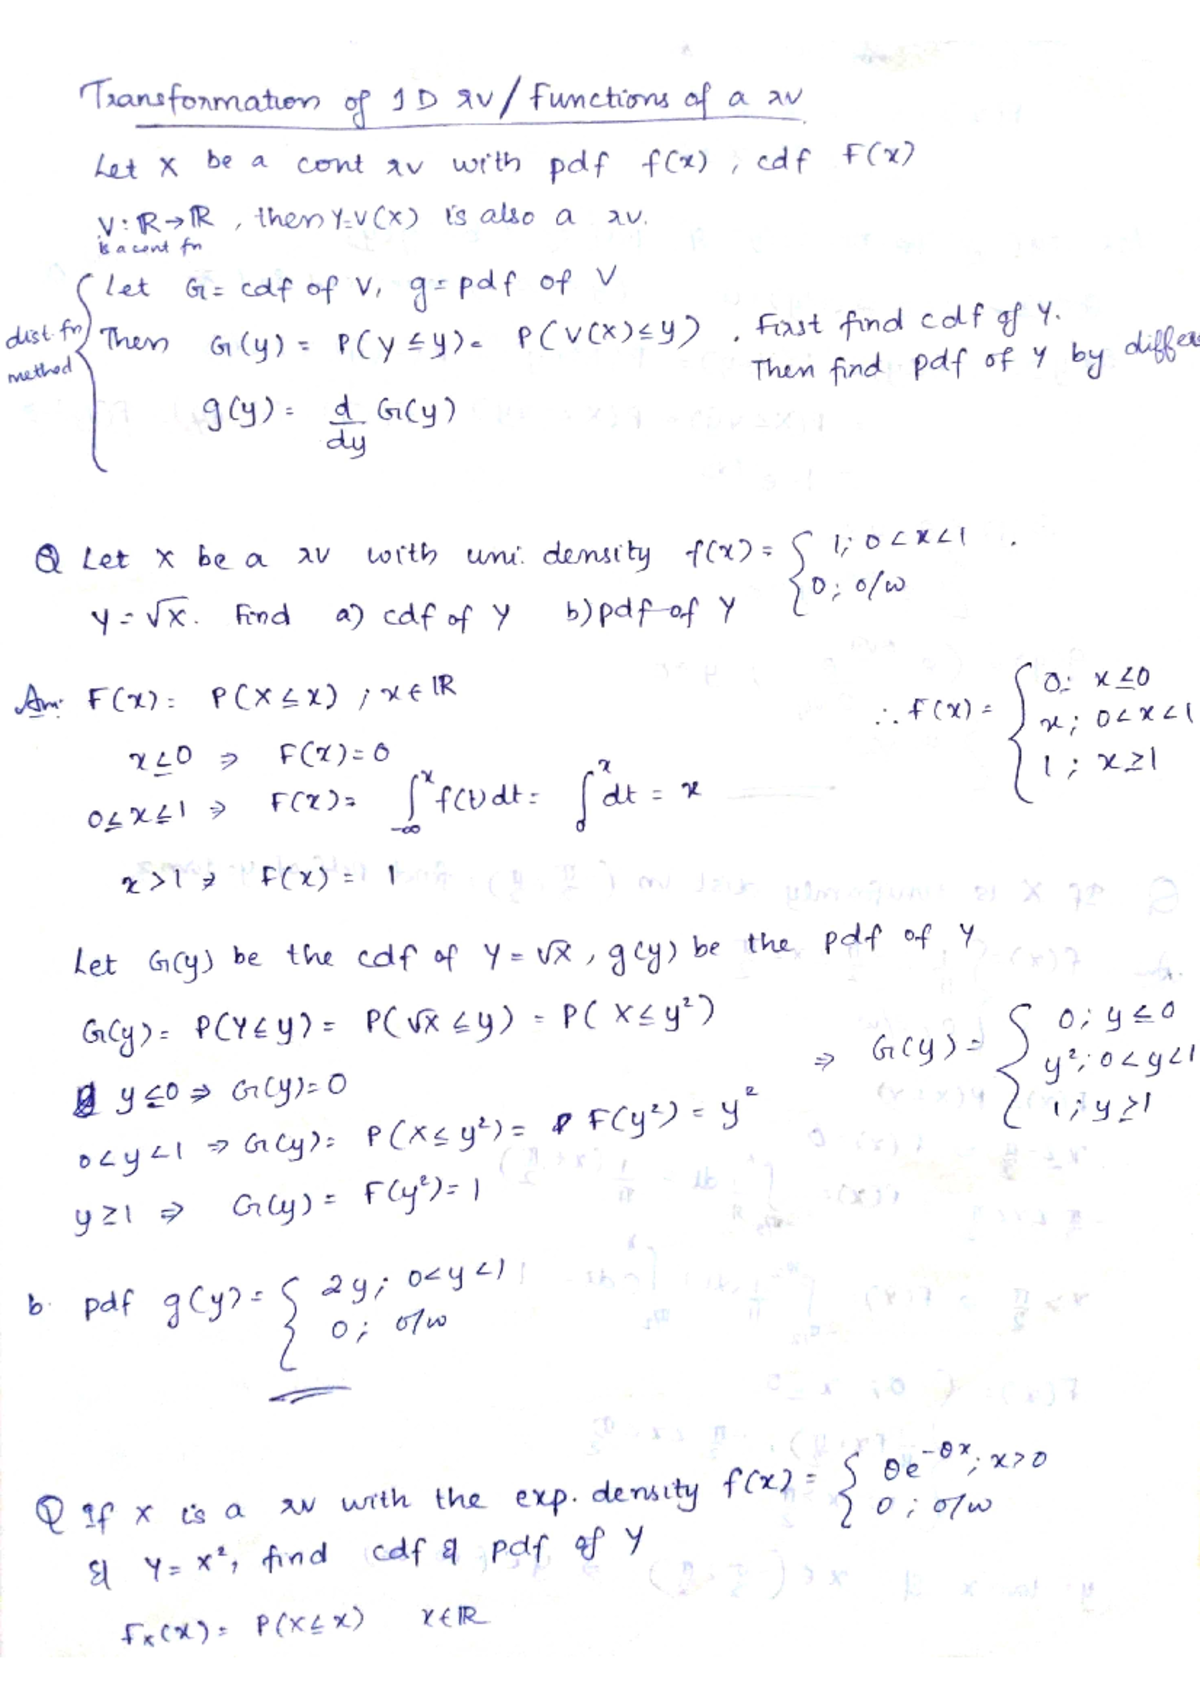 Transformation of 1D rv / Functions of a rv
Let X be a cont rv with pdf f(x), cdf F(x)
V: ℝ→ℝ, then Y=V(X) is also a rv.
is a cont fn
Let G = cdf of V, g = pdf of V
dist. fn method
Then G(y) = P(Y ≤ y) = P(V(X) ≤ y). First find cdf of Y.
Then find pdf of Y by differ
g(y) = d/dy G(y)
Q Let X be a rv with uni. density f(x) = { 1; 0<x<1 .
0; o/w
Y = √X. Find a) cdf of Y b) pdf of Y
Ans: F(x) = P(X ≤ x) ; x ∈ ℝ
x ≤ 0 ⇒ F(x) = 0
0 ≤ x ≤ 1 ⇒ F(x) = ∫_{-∞}^{x} f(t) dt = ∫_0^x dt = x
x > 1 ⇒ F(x) = 1
∴ F(x) = { 0: x ≤ 0
x; 0<x<1
1; x ≥ 1
Let G(y) be the cdf of Y = √X, g(y) be the pdf of Y
G(y) = P(Y ≤ y) = P(√X ≤ y) = P(X ≤ y²)
y ≤ 0 ⇒ G(y) = 0
0<y<1 ⇒ G(y) = P(X ≤ y²) = F(y²) = y²
y ≥ 1 ⇒ G(y) = F(y²) = 1
⇒ G(y) = { 0; y ≤ 0
y²; 0<y<1
1; y ≥ 1
b. pdf g(y) = { 2y; 0<y<1
0; o/w
Q If X is a rv with the exp. density f(x) = { θe^{-θx}; x>0
0; o/w
& Y = X², find cdf & pdf of Y
F_X(x) = P(X ≤ x) x ∈ ℝ